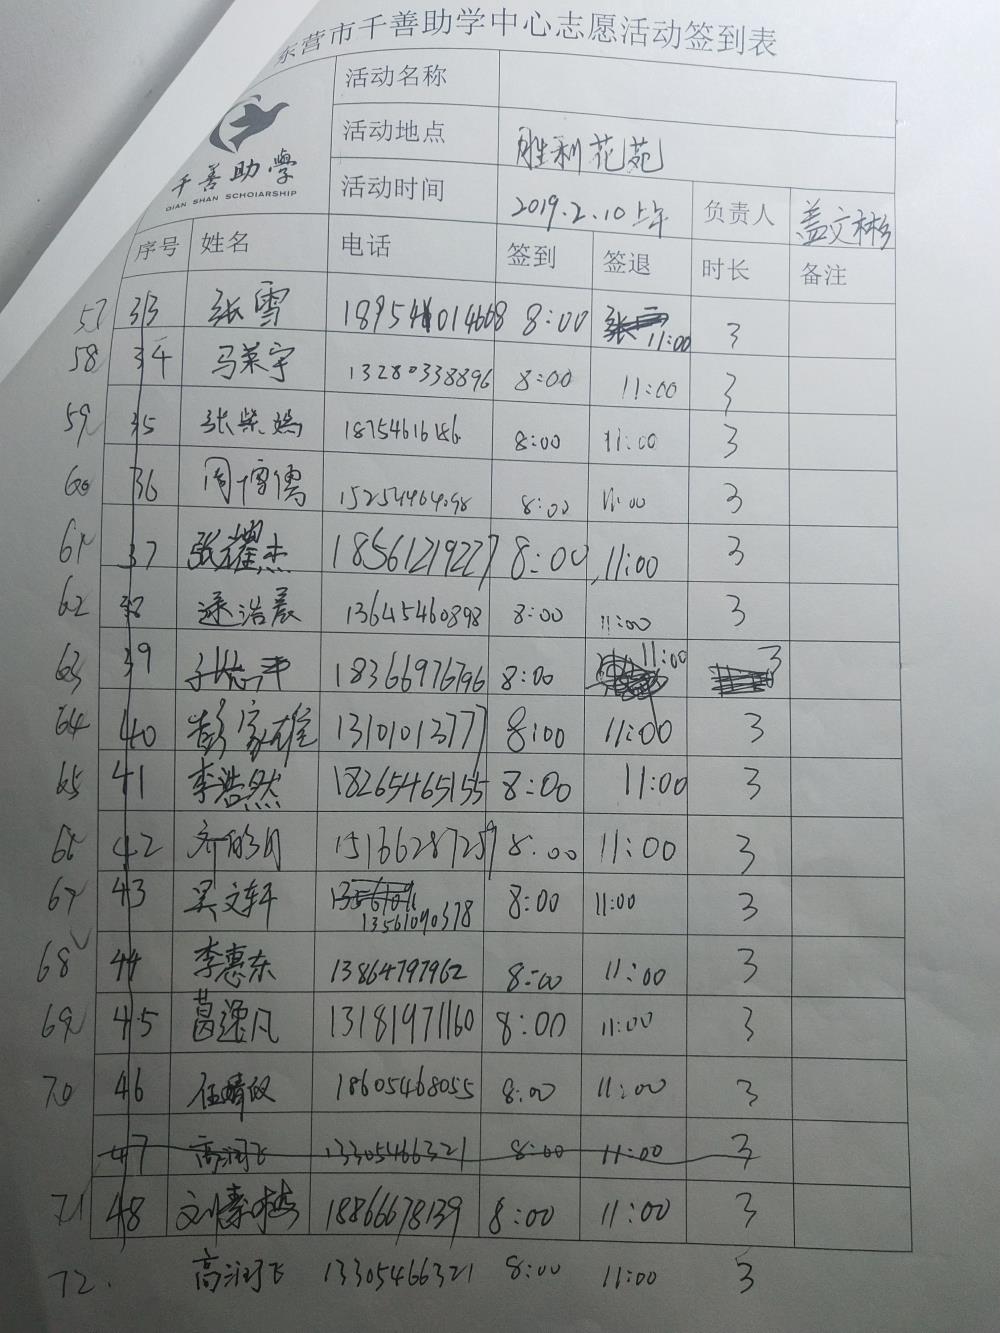 东营市千善助学中心志愿活动签到表
千善助学
QIAN SHAN SCHOIARSHIP
活动名称
活动地点 胜利花苑
活动时间 2019.2.10上午 负责人 盖文彬
序号 姓名 电话 签到 签退 时长 备注
57 33 张雪 8:00 11:00 3
58 34 马菜宇 13280338896 8:00 11:00 3
59 35 张紫嫣 8:00 11:00 3
60 36 周博儒 15254464098 8:00 11:00 3
61 37 张耀杰 18561219227 8:00 11:00 3
62 38 逯浩晨 13645460898 8:00 11:00 3
63 39 18366976796 8:00 11:00 3
64 40 彭家雄 13101013777 8:00 11:00 3
65 41 李浩然 18265465155 8:00 11:00 3
66 42 15166287259 8:00 11:00 3
67 43 吴文轩 13561090378 8:00 11:00 3
68 44 李惠东 13864797962 8:00 11:00 3
69 45 葛逸凡 13181971160 8:00 11:00 3
70 46 任婧 18605468055 8:00 11:00 3
47 高润飞 13305466321 8:00 11:00 3
71 48 刘 18866678139 8:00 11:00 3
72. 高润飞 13305466321 8:00 11:00 3